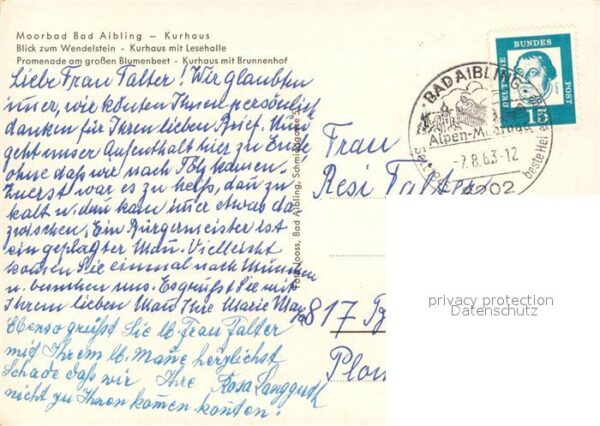 Moorbad Bad Aibling – Kurhaus
Blick zum Wendelstein - Kurhaus mit Lesehalle
Promenade am großen Blumenbeet - Kurhaus mit Brunnenhof
Liebe Frau Falter! Wir glaubten
imer, wir könten Ihnen persönlich
danken für Ihren lieben Brief. Nun
geht unser Aufenthalt hier zu Ende
ohne daß wir nach Tölz kamen.
Zuerst war es zu heiß, dan zu
kalt u. dan kam imer etwas da
zwischen. Ein Bürgermeister ist
ein geplagter Man. Vielleicht
komen Sie einmal nach München
u. besuchen uns. Es grüßt Sie mit
Ihrem lieben Man Ihre Marie
Ebenso grüßt Sie lb. Frau Falter
mit Ihrem lb. Mane herzlichst
Schade daß wir Ihre Rosa Langguth
nicht zu Ihnen komen konten!
Foto Jooss, Bad Aibling,
DEUTSCHE
BUNDES
POST
15
BAD AIBLING
Alpen-Moorbad
-7.8.63-12
8202
Frau
Resi Falter
817
privacy protection
Datenschutz